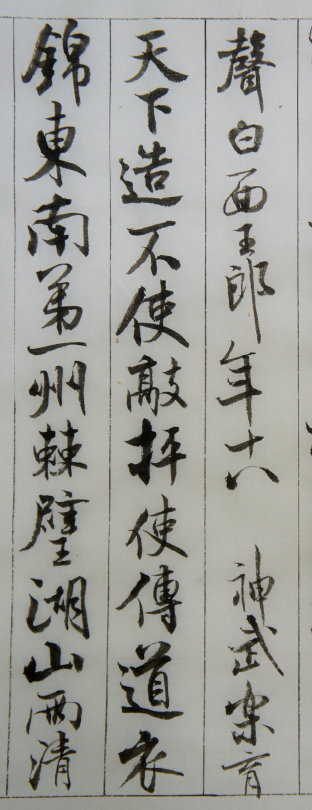 聲白面王郎年十八　神武樂育
天下造不使敲抨使傳道衣
錦東南第一州棘璧湖山兩清